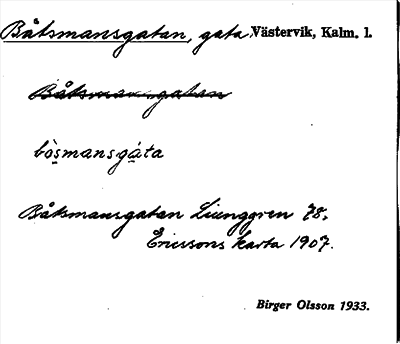 Båtsmansgatan, gata Västervik, Kalm. l.
Båtsmansgatan
bòsmansgàta
Båtsmansgatan Ljunggren 78,
Ericssons karta 1907.
Birger Olsson 1933.